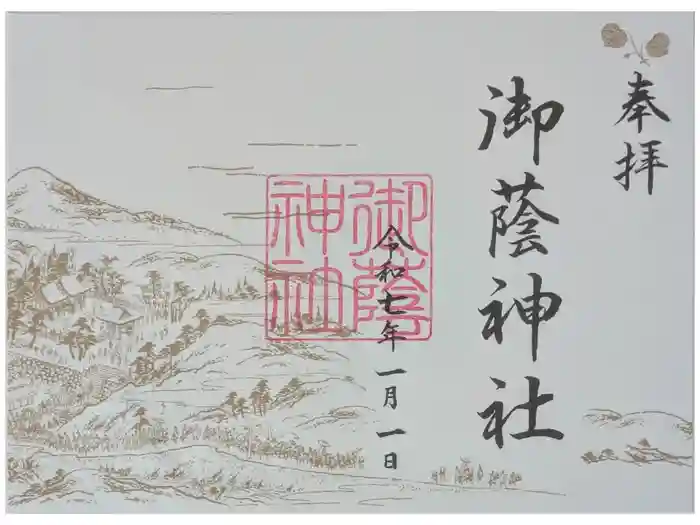 奉拝
御蔭神社
令和七年一月一日
御蔭
神社